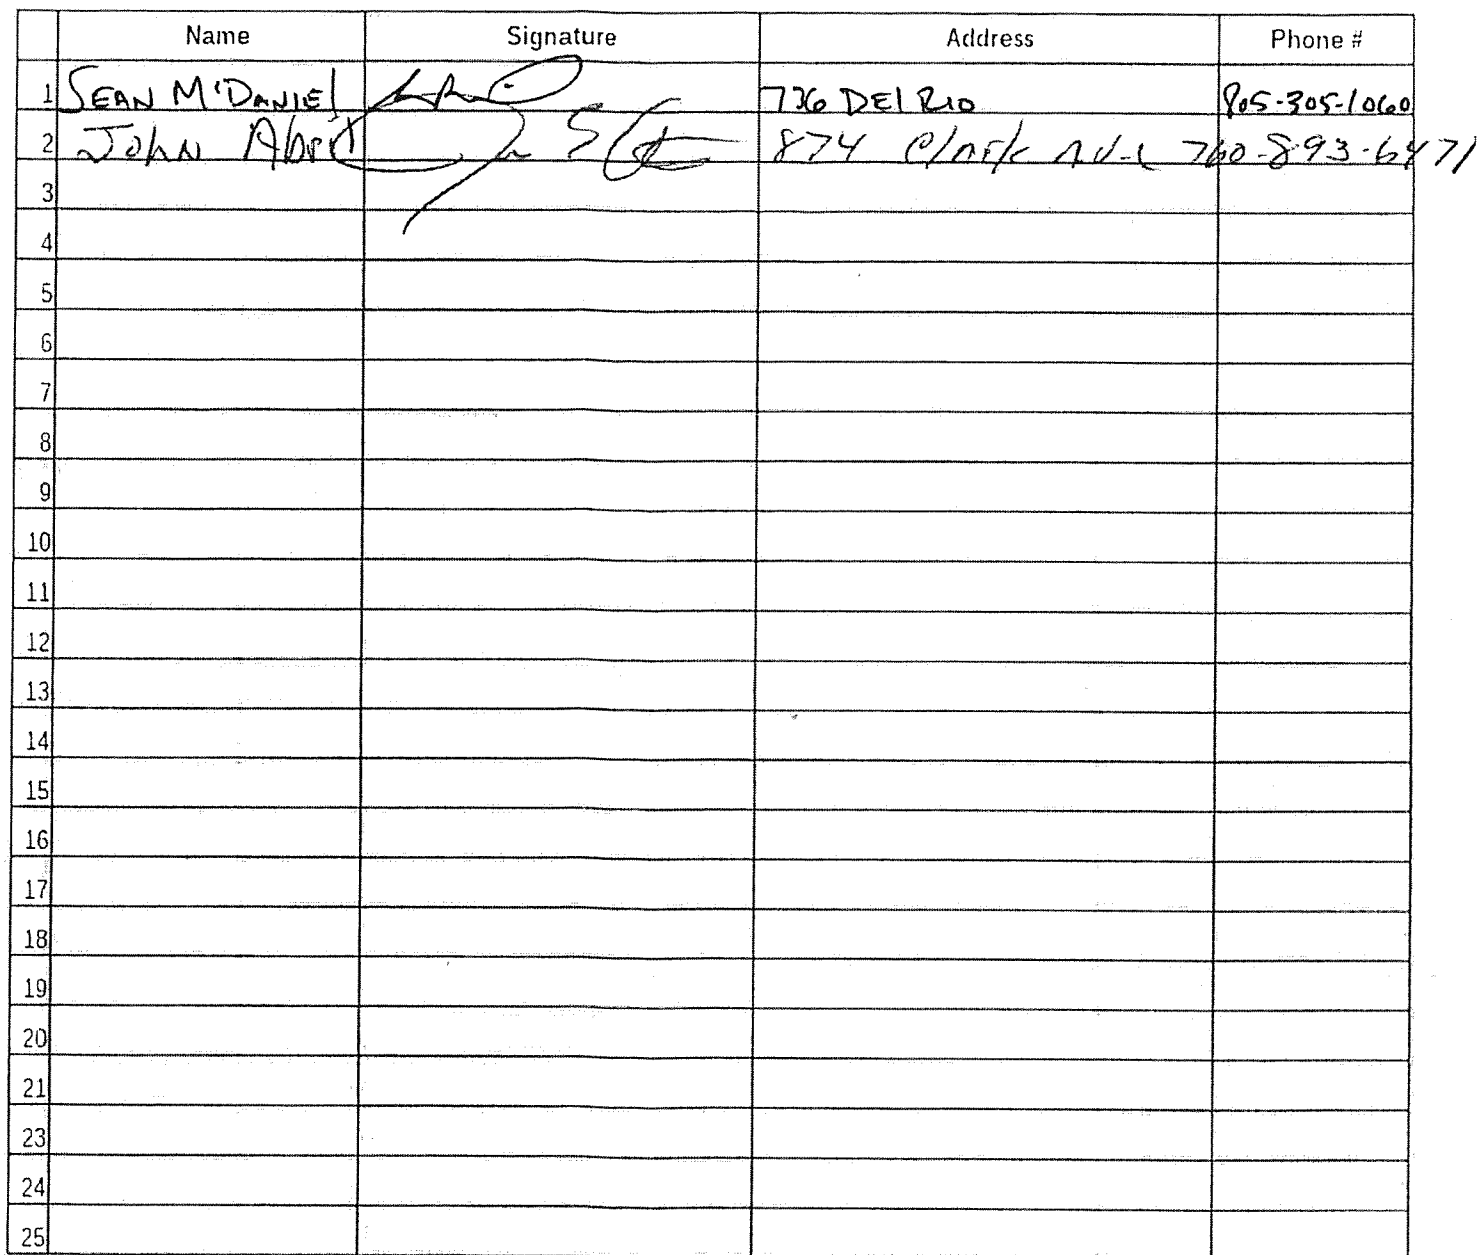 Name Signature Address Phone #
1 SEAN McDANIEL 736 DEL RIO 805-305-1060
2 John Abril 874 Clark Ave 760-893-6471
3
4
5
6
7
8
9
10
11
12
13
14
15
16
17
18
19
20
21
23
24
25